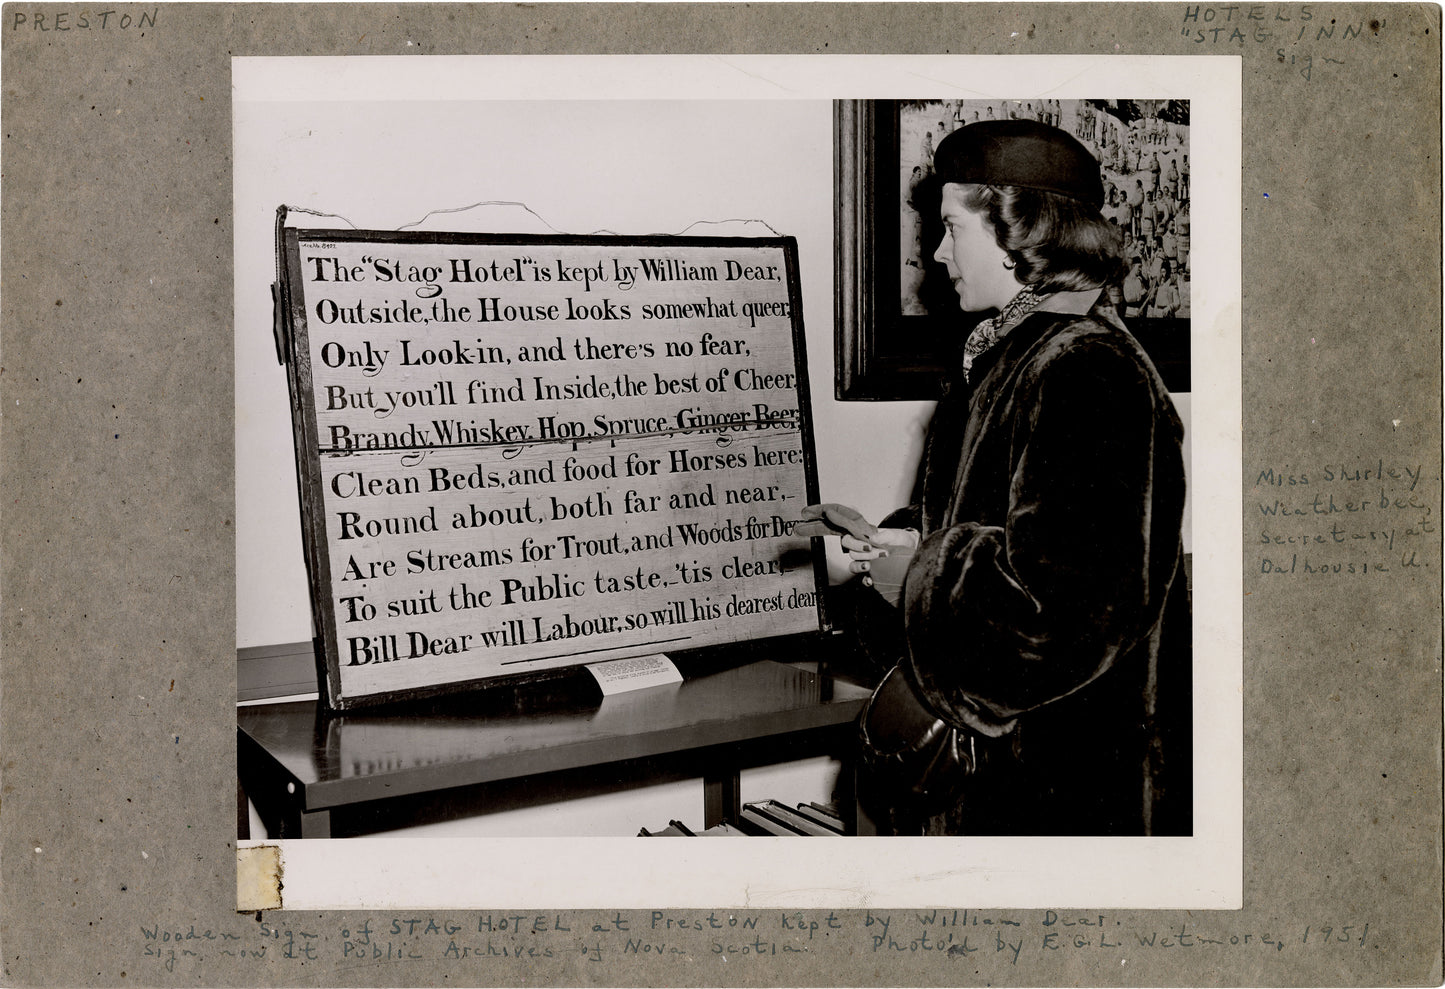 PRESTON
HOTELS
"STAG INN"
Sign
The "Stag Hotel" is kept by William Dear,
Outside, the House looks somewhat queer,
Only Look-in, and there's no fear,
But you'll find Inside, the best of Cheer,
Brandy, Whiskey, Hop, Spruce, Ginger Beer,
Clean Beds, and food for Horses here:
Round about, both far and near,_
Are Streams for Trout, and Woods for Dee
To suit the Public taste,_'tis clear,_
Bill Dear will Labour, so will his dearest dear
Miss Shirley
Weatherbee,
Secretary at
Dalhousie U.
Wooden Sign of STAG HOTEL at Preston kept by William Dear.
Sign now at Public Archives of Nova Scotia. Photo'd by E.G.L. Wetmore, 1951